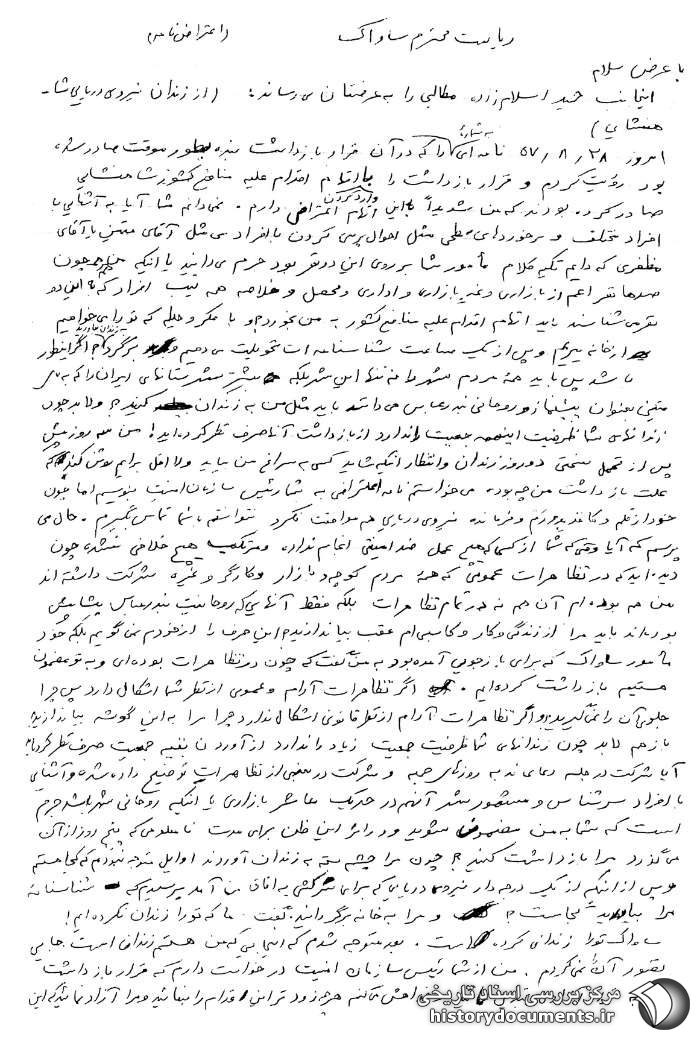 ریاست محترم ساواک (اعتراض نامه)
با عرض سلام
اینجانب حمید اسلام زاده مطالبی را به عرضتان می رساند: (از زندان نیروی دریایی شا-
هنشاهی)
امروز ۵۷/۸/۲۸ نامه ای به شماره را که در آن قرار بازداشت بنده بطور موقت صادر شده
بود رؤیت کردم و قرار بازداشت را با اتهام اقدام علیه منافع کشور شاهنشاهی
صادر کرده بودند که من شدیداً به وارد کردن این اتهام اعتراض دارم. نمی دانم شما آیا به آشنایی با
افراد مختلف و برخوردهای سطحی مثل احوال پرسی کردن با افرادی مثل آقای متقین یا آقای
مظفری که دایم تکیه کلام مأمور شما بر روی این دو نفر بود جرم می دانید یا اینکه چون
صدها نفر اعم از بازاری و غیر بازاری و اداری و محصل و خلاصه همه تیپ افراد که این دو
نفر می شناسند باید اتهام اقدام علیه منافع کشور به من بخورد و با مکر و حیله که تو را می خواهیم
از خانه ببریم و پس از یک ساعت شناسنامه ات تحویلت می دهیم و برگرد به زندان بیاورند اگر اینطور
باشد پس باید همه مردم شهر را نه تنها این شهر بلکه بیشتر شهرستانهای ایران را که به
متقین بعنوان پیشنماز و روحانی بندرعباس می دانند باید مثل من به زندان کنید و لابد چون
زندانهای شما ظرفیت اینهمه جمعیت را ندارد از بازداشت آنها صرف نظر کرده اید! من سه روز پیش
پس از تحمل سختی دو روز زندان و انتظار اینکه شاید کسی به سراغ من بیاید و لااقل برایم روشن کند که
علت بازداشت من چه بوده می خواستم نامه اعتراضی به شما رئیس سازمان امنیت بنویسم اما چون
خود از قلم و کاغذ بدورم و فرمانده نیروی دریایی هم موافقت نکرد نتوانستم با شما تماس بگیرم. حال می
پرسم که آیا وقتی که شما از کسی که هیچ عمل ضد امنیتی انجام نداده و مرتکب هیچ خلافی نشده، چون
دیده اید که در تظاهرات عمومی که همه مردم کوچه و بازار و کارگر و غیره شرکت داشته اند
من هم بوده ام آن هم نه در تمام تظاهرات بلکه فقط آنهایی که روحانیت بندرعباس پیشاپیش
بوده اند باید مرا از زندگی و کار و کاسبی ام عقب بیاندازید؟ این حرف را از خودم نمی گویم بلکه خود
مأمور ساواک که برای بازجویی آمده بود به من گفت که چون در تظاهرات بوده ای و به تو مظنون
هستیم بازداشت کرده ایم. اگر تظاهرات آرام و عمومی از نظر شما اشکال دارد پس چرا
جلوی آن را نمی گیرید و اگر تظاهرات آرام از نظر قانونی اشکال ندارد چرا مرا به این گوشه بیاندازید
باز هم لابد چون زندانهای شما ظرفیت جمعیت زیاد را ندارد از آوردن بقیه جمعیت صرف نظر کرده اید
آیا شرکت در جلسه دعای ندبه روزهای جمعه و شرکت در بعضی از تظاهرات توضیح داده شده و آشنایی
با افراد سرشناس و مشهور شهر آنهم در حد یک معاشر بازاری یا اینکه روحانی شهر باشد جرم
است که شما به من مظنون شوید و در اثر این ظن برای مدت نامعلومی که پنج روز از آن
می گذرد مرا بازداشت کنید؟ چون مرا چشم بسته به زندان آوردند اوایل متوجه نبودم که کجا هستم
و پس از اینکه از یک درجه دار نیروی دریایی که برای سرکشی به اتاق من آمد پرسیدم که شناسنامه
مرا بیاورید کجاست؟ و مرا به خانه برگردانید. گفت ما که تو را زندان نکرده ایم!
ساواک تو را زندانی کرده است. بعد متوجه شدم که اینجایی که من هستم زندان است جایی
تصور آن را نمی کردم. من از شما رئیس سازمان امنیت درخواست دارم که قرار بازداشت
خواهش می کنم هر چه زودتر این اقدام را بنمائید و مرا آزاد نمائید که این
مرکز بررسی اسناد تاریخی
historydocuments.ir